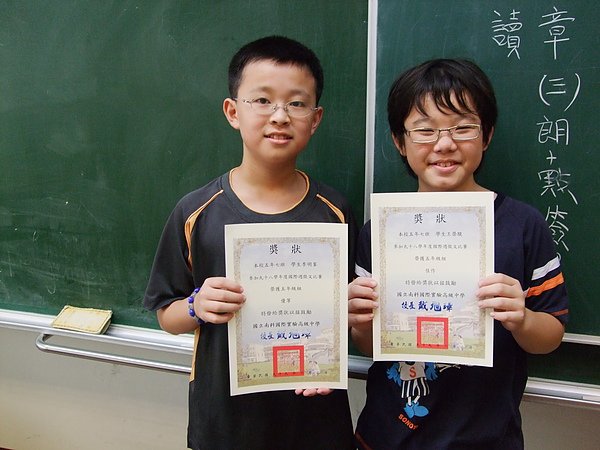 讀章(三)朗+點簽
獎狀
本校五年七班 學生李明家
參加九十八學年度國際週徵文比賽
榮獲五年級組
優等
特發給獎狀以茲鼓勵
國立南科國際實驗高級中學
校長
獎狀
本校五年七班 學生王榮駿
參加九十八學年度國際週徵文比賽
榮獲五年級組
佳作
特發給獎狀以茲鼓勵
國立南科國際實驗高級中學
校長
SONGS